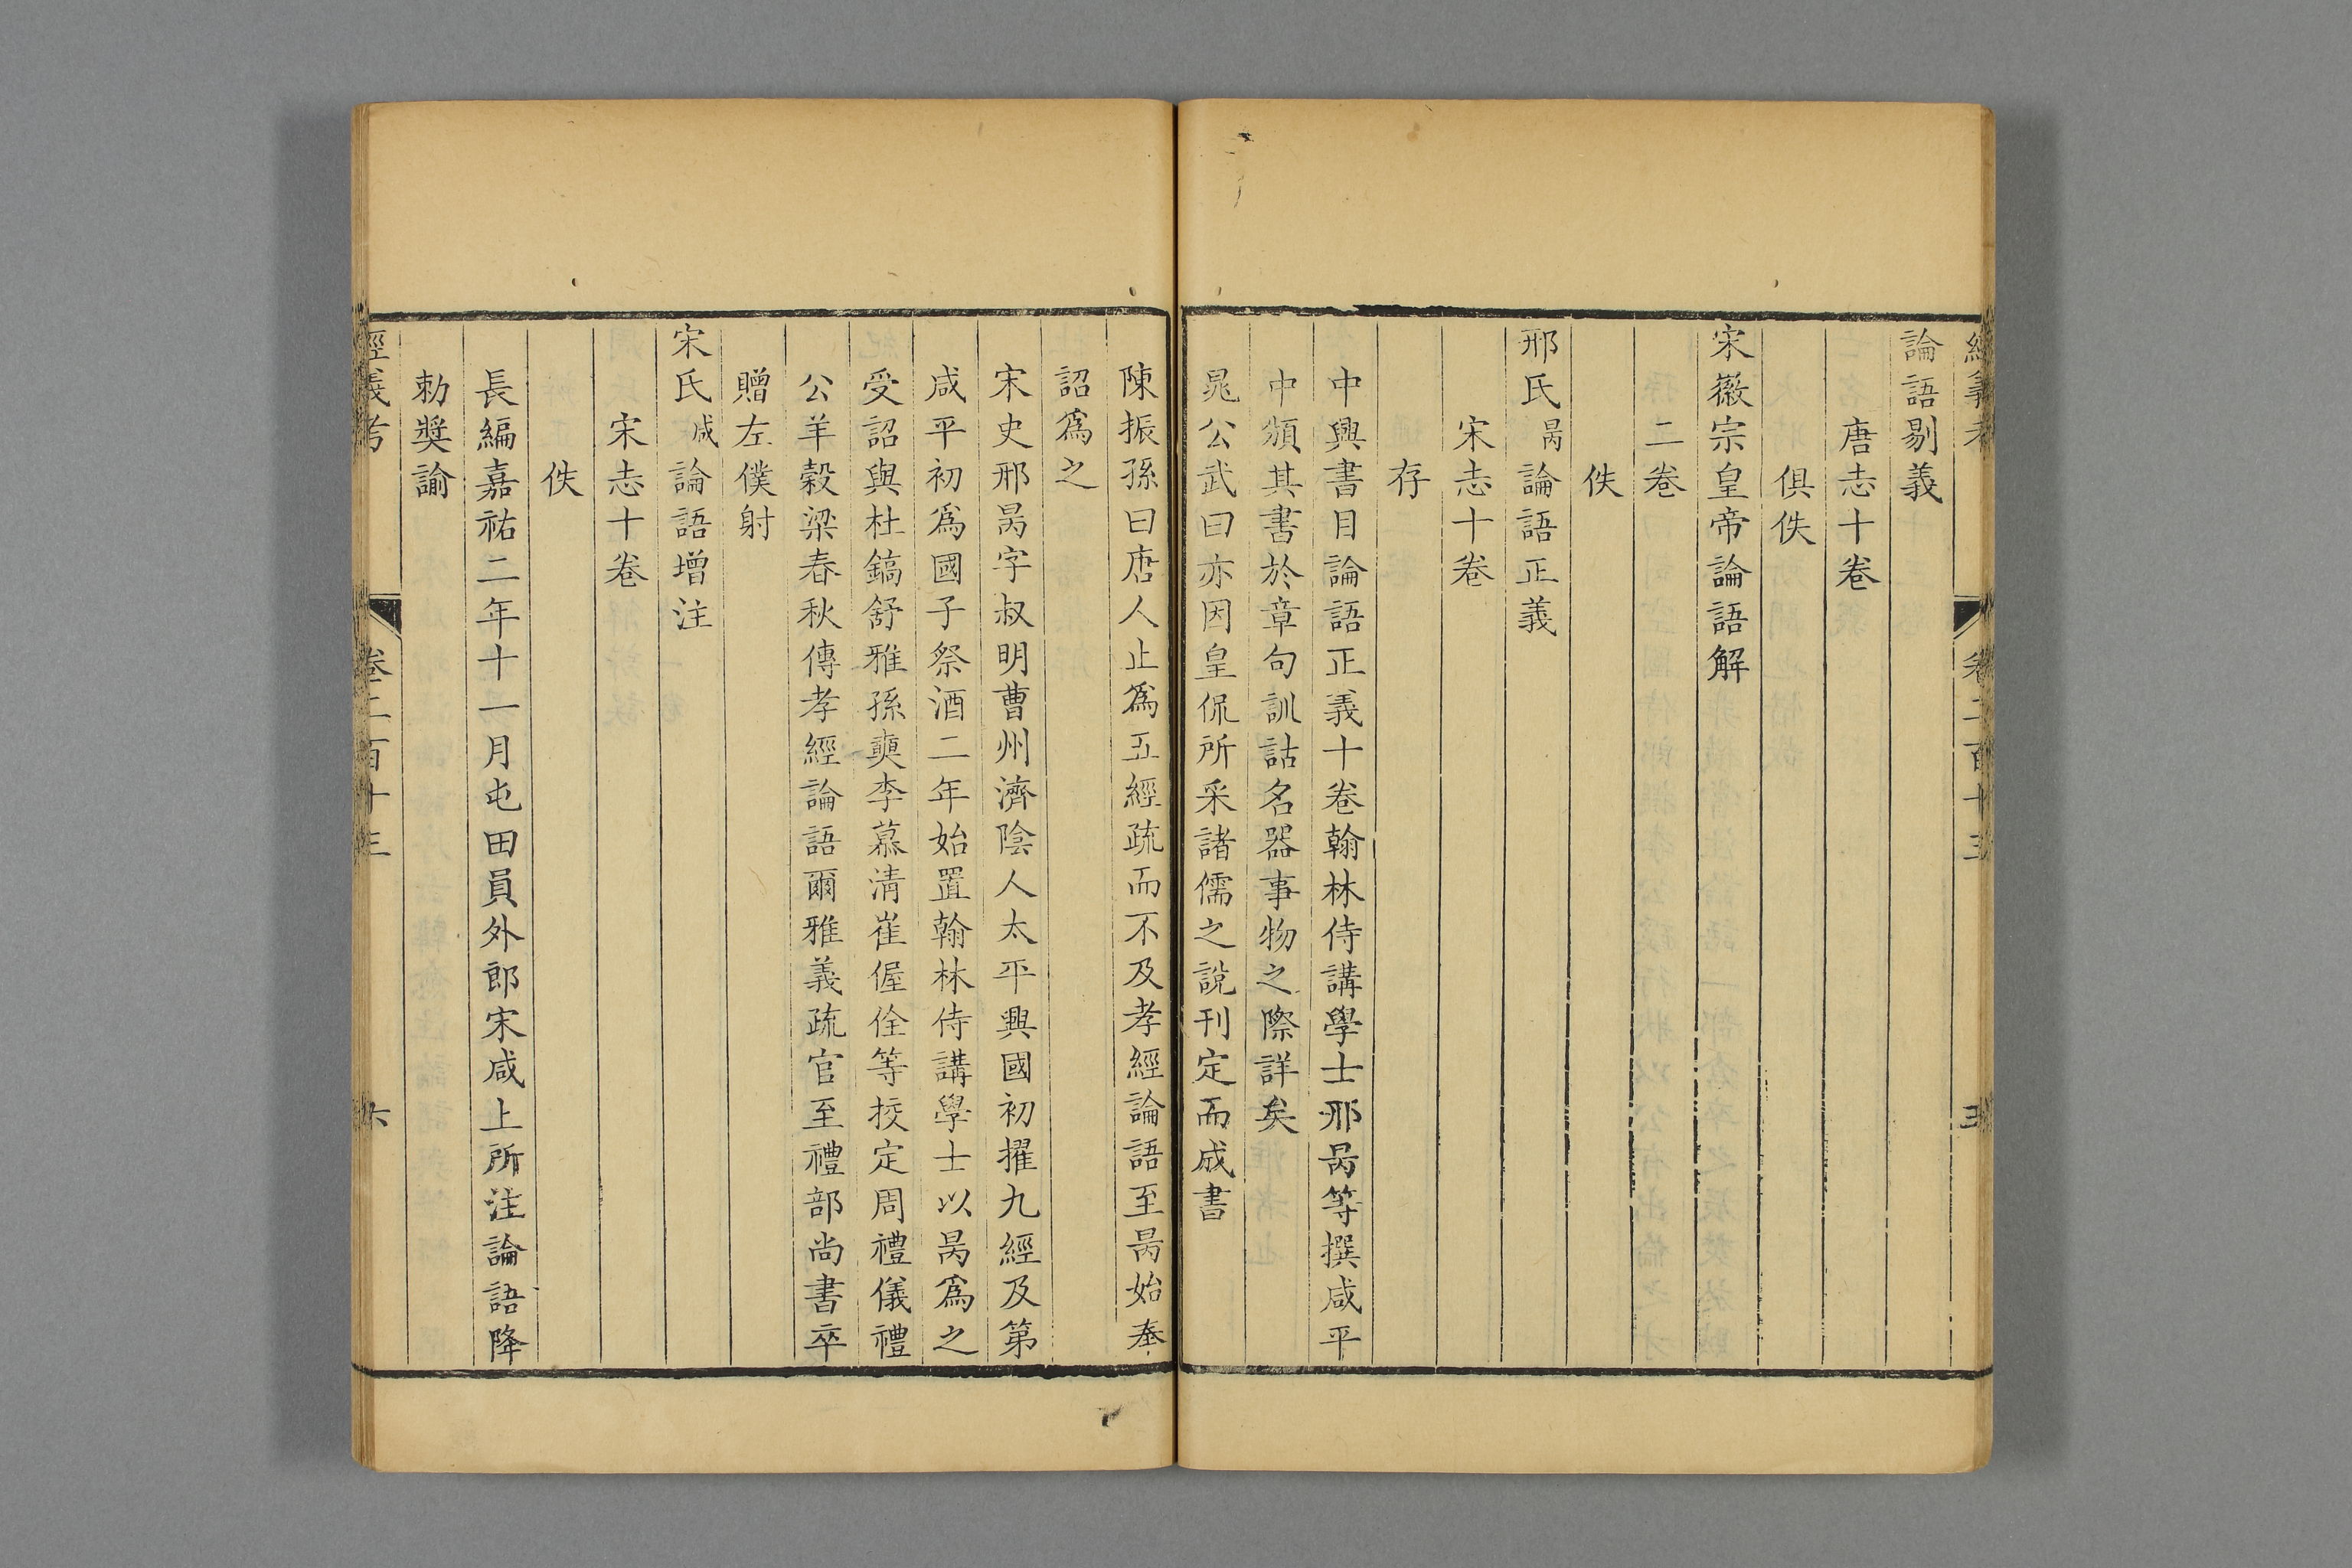 經義考 卷二百十三 五
論語剔義
唐志十卷
俱佚
宋徽宗皇帝論語解
二卷
佚
邢氏昺論語正義
宋志十卷
存
中興書目論語正義十卷翰林侍講學士邢昺等撰咸平
中頒其書於章句訓詁名器事物之際詳矣
晁公武曰亦因皇侃所采諸儒之說刊定而成書
陳振孫曰唐人止爲五經疏而不及孝經論語至昺始奉
詔爲之
宋史邢昺字叔明曹州濟陰人太平興國初擢九經及第
咸平初爲國子祭酒二年始置翰林侍講學士以昺爲之
受詔與杜鎬舒雅孫奭李慕清崔偓佺等挍定周禮儀禮
公羊穀梁春秋傳孝經論語爾雅義疏官至禮部尚書卒
贈左僕射
宋氏咸論語增注
宋志十卷
佚
長編嘉祐二年十一月屯田員外郎宋咸上所注論語降
勅獎諭
經義考 卷二百十三 六